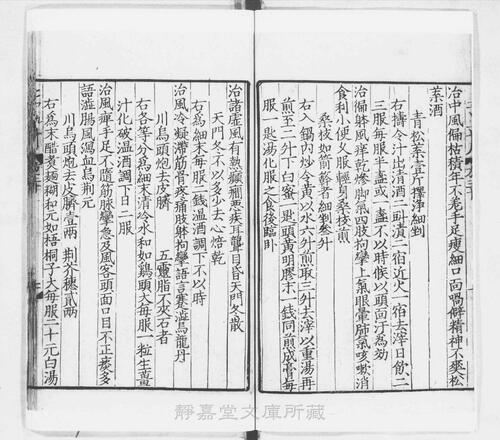 治中風偏枯積年不差手足瘦細口面喎僻精神不爽松
葉酒
青松葉壹斤擇淨細剉
右擣令汁出清酒二卧漬二宿近火一宿去滓日飲二
三服每服半盞或一盞不以時候以頭面汗爲効
治徧躰風痒乾燥脚氣四肢拘攣上氣眼暈肺氣咳嗽消
食利小便义服輕身桑枝煎
桑枝如箭簳者細剉叁升
右入鍋內炒令黃以水六升煎取三升去滓以重湯再
煎至二升下白蜜一匙頭黃明膠末一錢同煎成膏每
服一匙湯化服之食後臨卧
治諸虛風有熱癲癎惡疾耳聾目昏天門冬散
天門冬不以多少去心焙乾
右爲細末每服二錢温酒調下不以時
治風冷凝滯筋骨疼痛肢躰拘攣語言蹇澁烏龍丹
川烏頭炮去皮臍
五靈脂不夾石者
右各等分爲細末清冷水和如鷄頭大每服一粒生薑
汁化破温酒調下日二服
治風癱手足不隨筋脉攣急及風客頭面口目不正痰多
語澁腸風瀉血烏荆元
川烏頭炮去皮臍壹兩
荆芥穗貳兩
右爲末醋煑麺糊和元如梧桐子大每服二十元白湯
靜嘉堂文庫所藏